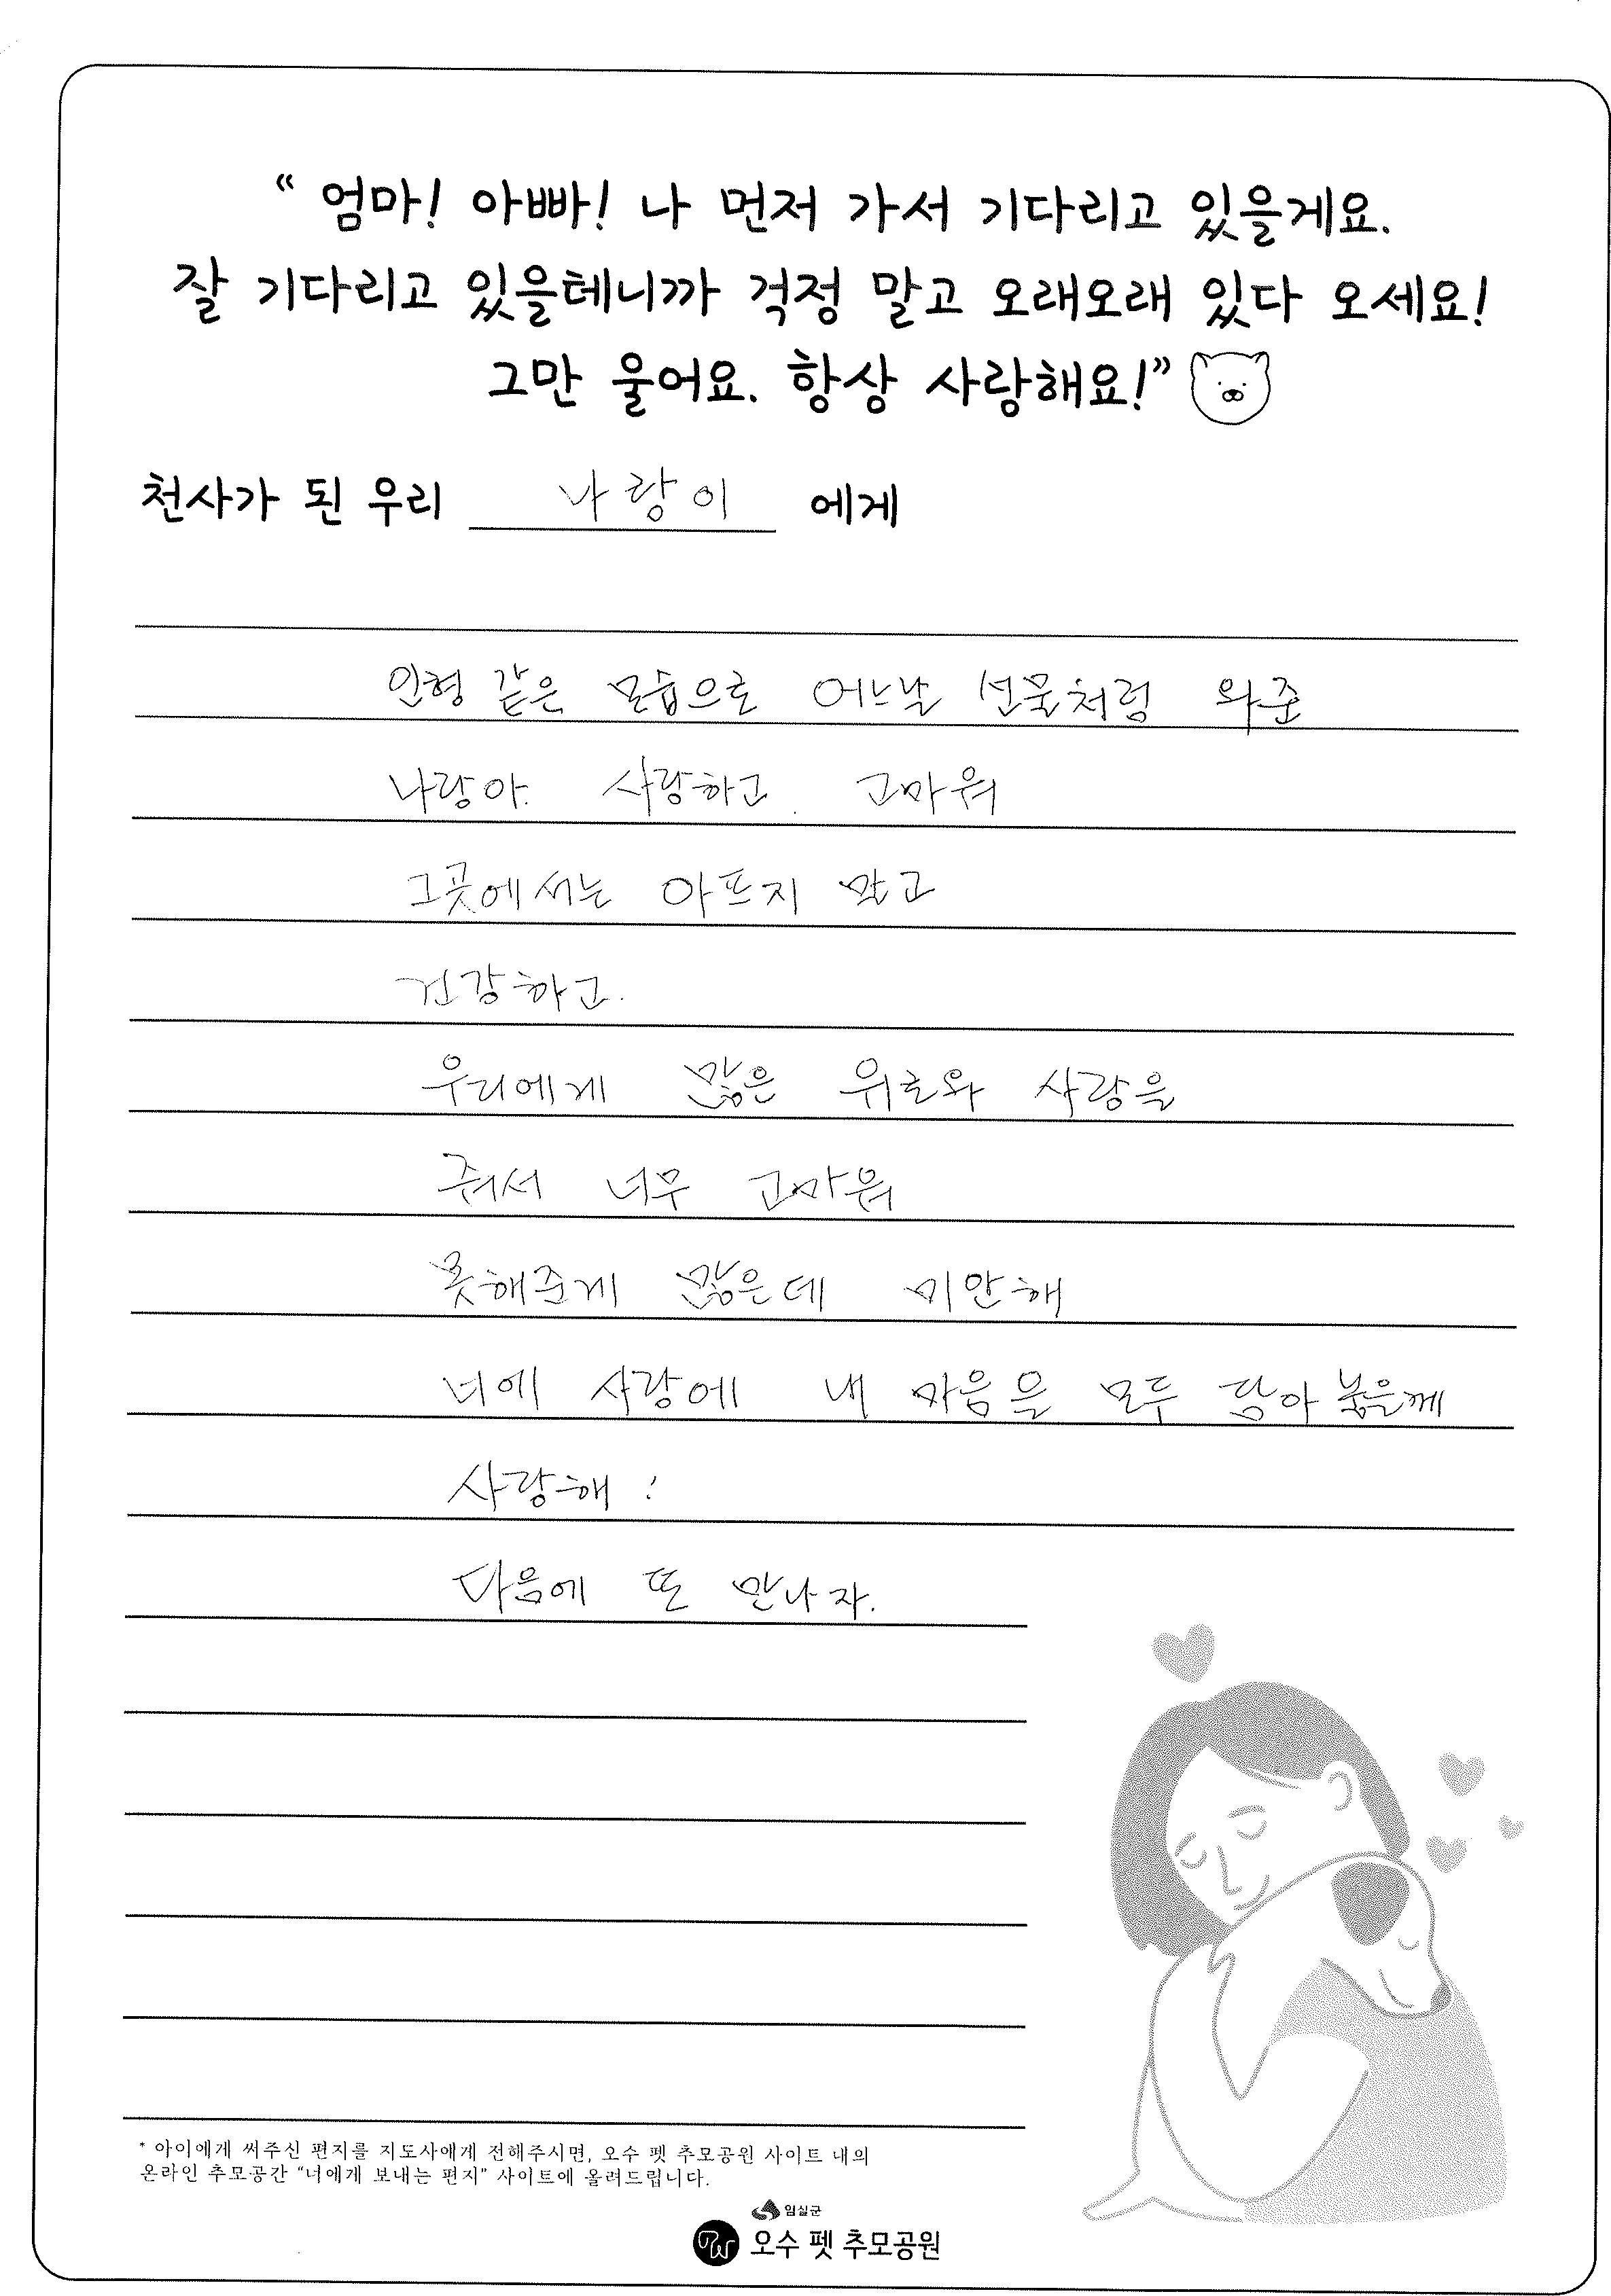 “ 엄마! 아빠! 나 먼저 가서 기다리고 있을게요.
잘 기다리고 있을테니까 걱정 말고 오래오래 있다 오세요!
그만 울어요. 항상 사랑해요!”
천사가 된 우리 나랑이 에게
인형 같은 모습으로 어느날 선물처럼 와준
나랑아. 사랑하고. 고마워
그곳에서는 아프지 말고
건강하고.
우리에게 많은 위로와 사랑을
줘서 너무 고마워
못해준게 많은데 미안해
너에 사랑에 내 마음을 모두 담아
사랑해!
다음에 또 만나자.
* 아이에게 써주신 편지를 지도사에게 전해주시면, 오수 펫 추모공원 사이트 내의
온라인 추모공간 “너에게 보내는 편지” 사이트에 올려드립니다.
임실군
오수 펫 추모공원